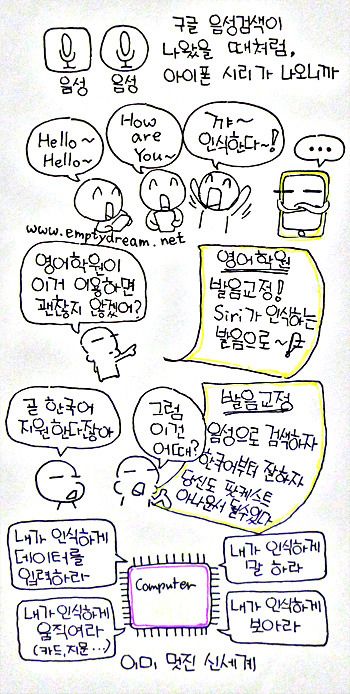 음성 음성
구글 음성검색이
나왔을 때처럼,
아이폰 시리가 나오니까
Hello~
Hello~
How
are
You~
꺄~
인식한다~!
...
www.emptydream.net
영어학원이
이거 이용하면
괜찮지 않겠어?
영어학원
발음교정!
Siri가 인식하는
발음으로~♪
곧 한국어
지원한다잖아
그럼
이건
어때?
발음교정
음성으로 검색하자
한국어부터 잘하자
당신도 팟케스트
아나운서 될수있다
내가 인식하게
데이터를
입력하라
내가 인식하게
말 하라
Computer
내가 인식하게
움직여라
(카드,지문...)
내가 인식하게
보아라
이미 멋진 신세계